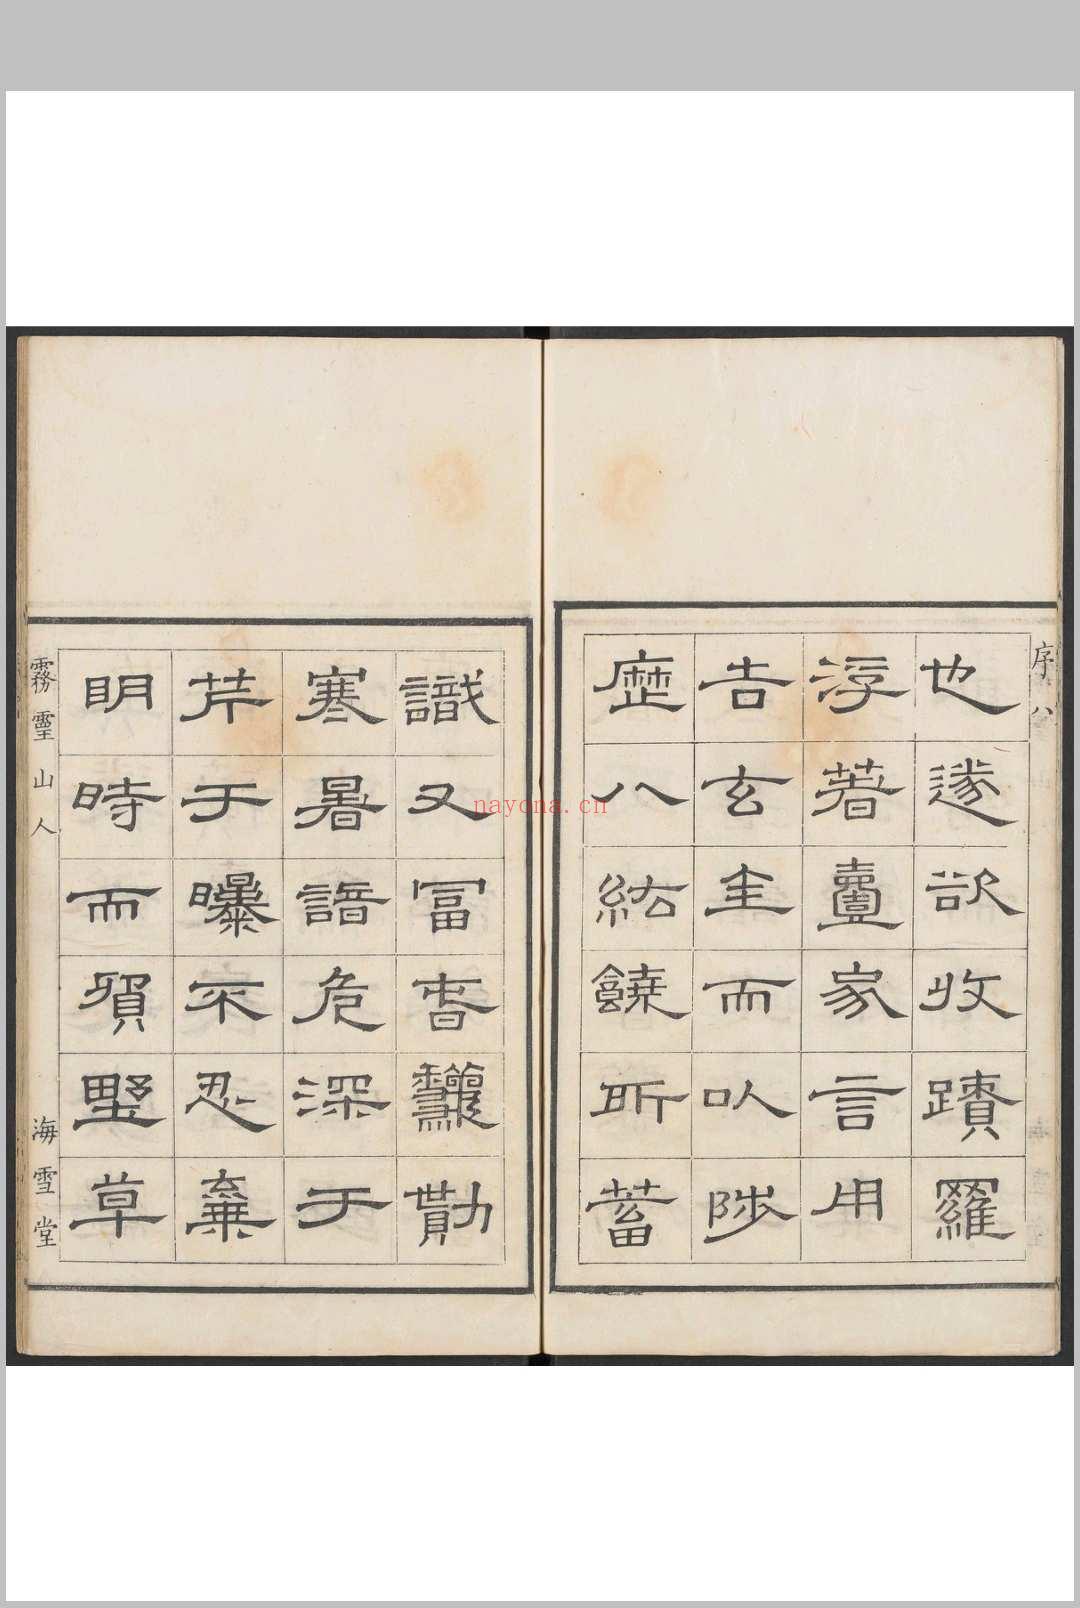 序 八
也遂欲收蹟羅
浮著家言用
告玄圭而以陟
歷八紘饒所蓄
識又冨旾龝勩
寒暑諳危深于
芹于曝不忍棄
眀時而貿墅草
霧靈山人 海雪堂
nayona.cn